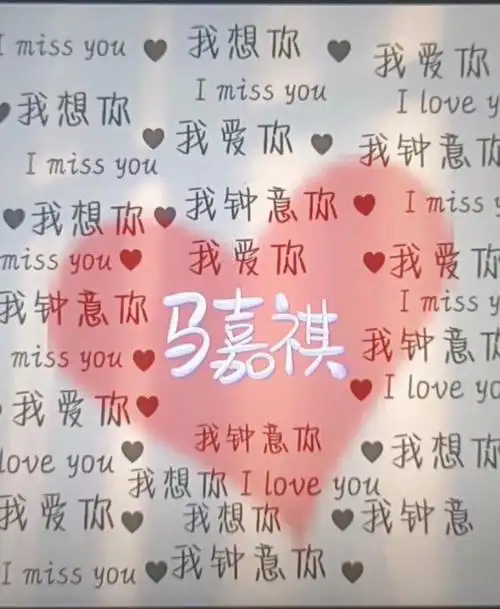 I miss you ♥ 我想你 ♥ 我爱你
I miss you I love y
♥ 我想你 ♥ 我爱你 ♥ 我钟意你
I miss you
♥ 我想你 ♥ 我钟意你 ♥ I miss y
miss you ♥ 我爱你 ♥ 我爱你
我钟意你 马嘉祺 I miss y
miss you ♥ 我钟意你
♥ I love you
我爱你 ♥ 我钟意你 ♥ 我想你
love you ♥ 我想你 I love you
我爱你 ♥ 我想你 ♥ 我钟意
I miss you ♥ 我钟意你 ♥